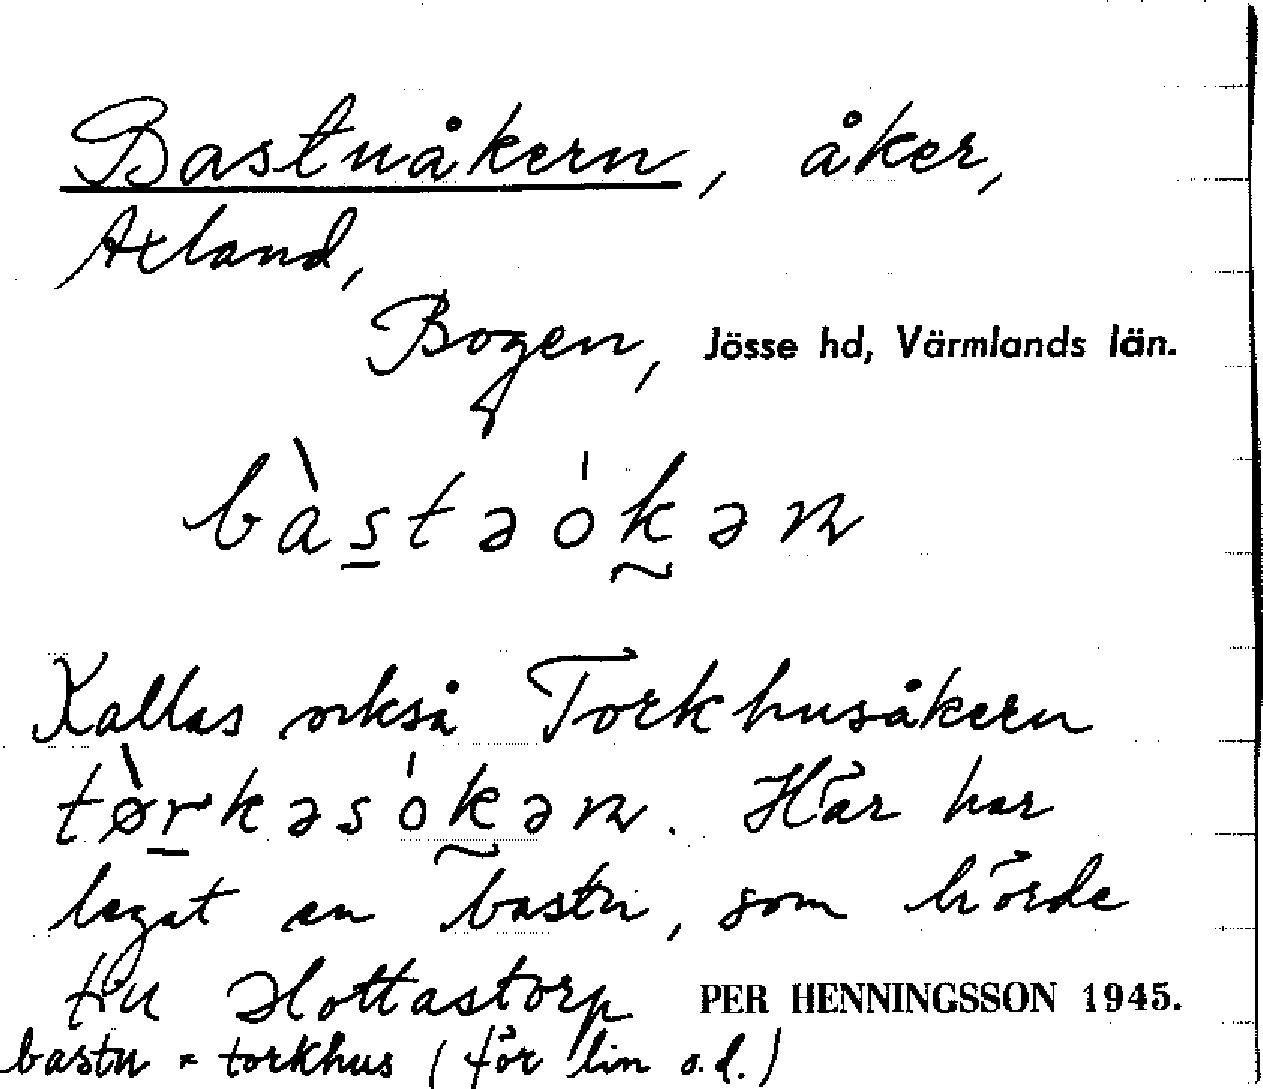 Bastuåkern, åker,
Axland,
Bogen, Jösse hd, Värmlands län.
bàstəókən
Kallas också Torkhusåkern
tørkəsókən. Här har
legat en bastu, som hörde
till Hottastorp PER HENNINGSSON 1945.
bastu = torkhus (för lin o.d.)